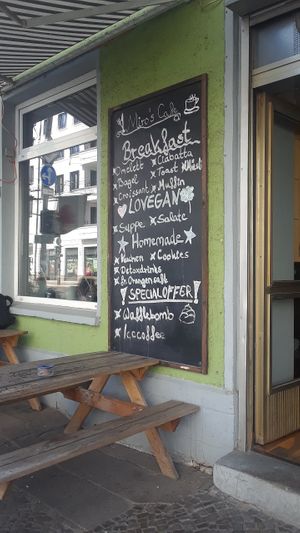 Miro's Café
Breakfast
x Omelett x Ciabatta
x Bagel x Toast x Müsli
x Croissant x Muffin
LOVEGAN
x Suppe x Salate
Homemade
x Kuchen x Cookies
x Detoxdrinks
x Orangencafé
! SPECIAL OFFER !
x Wafflebomb
x Icecoffee